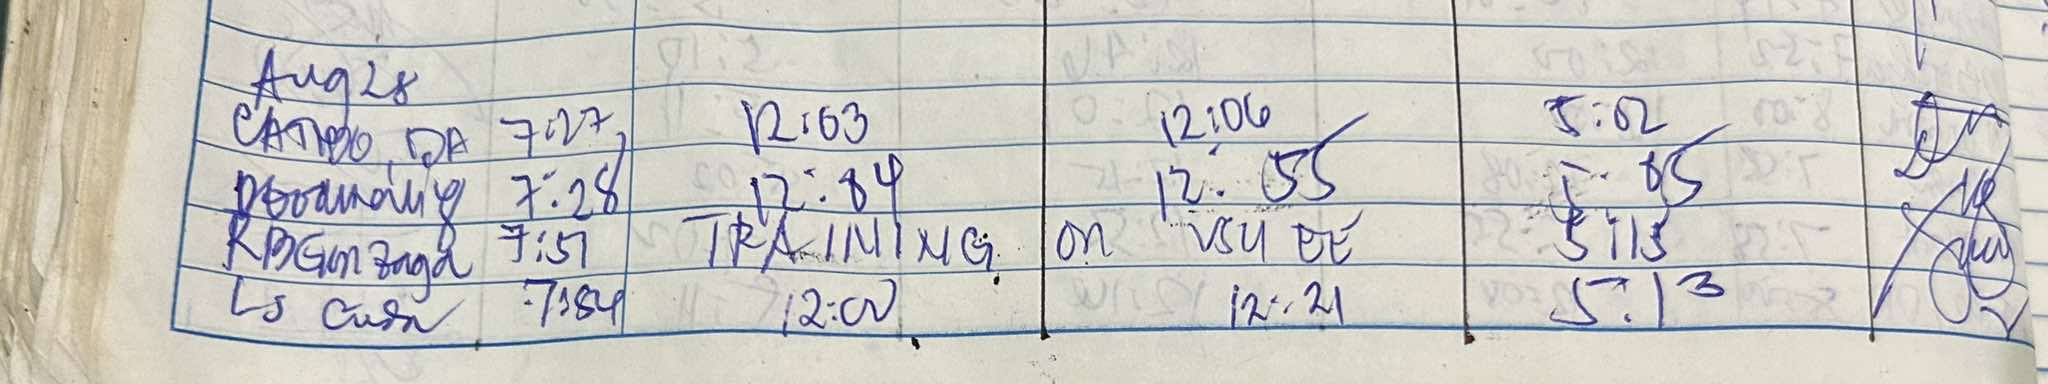 Aug 28
CATIPO, DA 7:27 12:03 12:06 5:02
7:28 12:04 12:55 5:05
RBGonzaga 7:51 TRAINING on VSU EE 5:13
LS Cusa 7:54 12:00 12:21 5:13